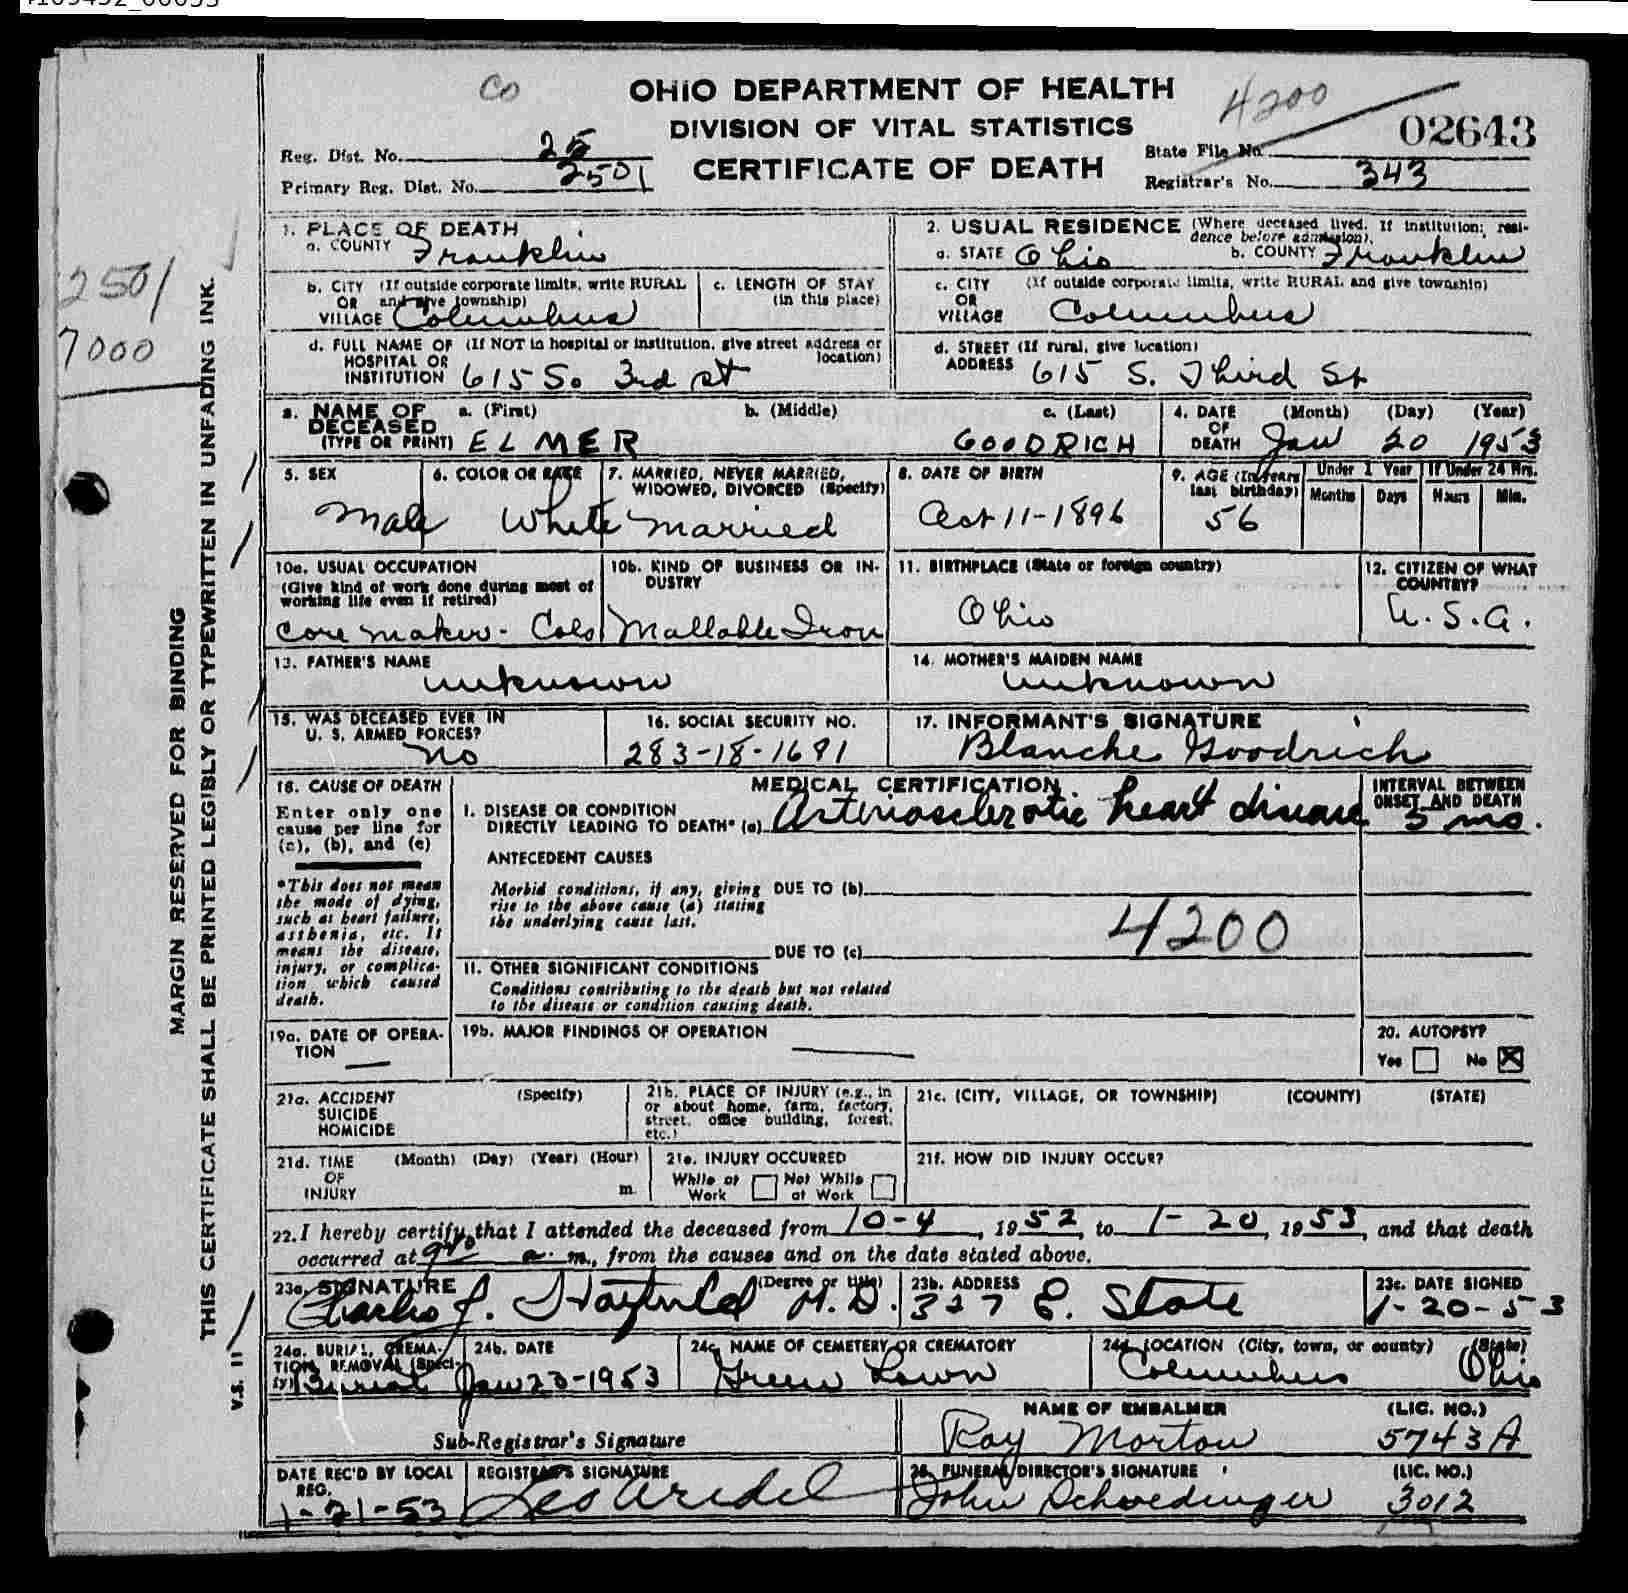 Co
OHIO DEPARTMENT OF HEALTH
4200
DIVISION OF VITAL STATISTICS
02643
CERTIFICATE OF DEATH
Reg. Dist. No. 25
State File No.
Primary Reg. Dist. No. 2501
Registrar's No. 343
2501
7000
MARGIN RESERVED FOR BINDING
THIS CERTIFICATE SHALL BE PRINTED LEGIBLY OR TYPEWRITTEN IN UNFADING INK.
V.S. 11
1. PLACE OF DEATH
a. COUNTY Franklin
2. USUAL RESIDENCE (Where deceased lived. If institution: residence before admission).
a. STATE Ohio b. COUNTY Franklin
b. CITY (If outside corporate limits, write RURAL
OR and give township)
VILLAGE Columbus
c. LENGTH OF STAY
(in this place)
c. CITY (If outside corporate limits, write RURAL and give township)
OR
VILLAGE Columbus
d. FULL NAME OF (If NOT in hospital or institution, give street address or
HOSPITAL OR location)
INSTITUTION 615 So. 3rd St
d. STREET (If rural, give location)
ADDRESS 615 S. Third St
3. NAME OF DECEASED
(TYPE OR PRINT)
a. (First) b. (Middle) c. (Last)
ELMER GOODRICH
4. DATE OF DEATH (Month) (Day) (Year)
Jan 20 1953
5. SEX
Male
6. COLOR OR RACE
White
7. MARRIED, NEVER MARRIED,
WIDOWED, DIVORCED (Specify)
Married
8. DATE OF BIRTH
Oct 11-1896
9. AGE (In years last birthday)
56
Under 1 Year
Months Days
If Under 24 Hrs.
Hours Min.
10a. USUAL OCCUPATION
(Give kind of work done during most of
working life even if retired)
Core Maker - Cols
10b. KIND OF BUSINESS OR INDUSTRY
Mallable Iron
11. BIRTHPLACE (State or foreign country)
Ohio
12. CITIZEN OF WHAT COUNTRY?
U.S.A.
13. FATHER'S NAME
unknown
14. MOTHER'S MAIDEN NAME
unknown
15. WAS DECEASED EVER IN
U. S. ARMED FORCES?
No
16. SOCIAL SECURITY NO.
283-18-1691
17. INFORMANT'S SIGNATURE
Blanche Goodrich
18. CAUSE OF DEATH
Enter only one
cause per line for
(a), (b), and (c)
*This does not mean
the mode of dying,
such as heart failure,
asthenia, etc. It
means the disease,
injury, or complication
which caused
death.
MEDICAL CERTIFICATION
I. DISEASE OR CONDITION
DIRECTLY LEADING TO DEATH* (a) Arteriosclerotic heart disease
INTERVAL BETWEEN
ONSET AND DEATH
5 mo.
ANTECEDENT CAUSES
Morbid conditions, if any, giving DUE TO (b)
rise to the above cause (a) stating
the underlying cause last.
4200
DUE TO (c)
II. OTHER SIGNIFICANT CONDITIONS
Conditions contributing to the death but not related
to the disease or condition causing death.
19a. DATE OF OPERATION
19b. MAJOR FINDINGS OF OPERATION
20. AUTOPSY?
Yes No
21a. ACCIDENT (Specify)
SUICIDE
HOMICIDE
21b. PLACE OF INJURY (e.g., in
or about home, farm, factory,
street, office building, forest,
etc.)
21c. (CITY, VILLAGE, OR TOWNSHIP) (COUNTY) (STATE)
21d. TIME (Month) (Day) (Year) (Hour)
OF
INJURY m.
21e. INJURY OCCURRED
While at Work Not While at Work
21f. HOW DID INJURY OCCUR?
22. I hereby certify that I attended the deceased from 10-4, 1952 to 1-20, 1953, and that death
occurred at a. m., from the causes and on the date stated above.
23a. SIGNATURE (Degree or title)
Charles J. M.D.
23b. ADDRESS
327 E. State
23c. DATE SIGNED
1-20-53
24a. BURIAL, CREMATION, REMOVAL (Specify)
Burial
24b. DATE
Jan 23-1953
24c. NAME OF CEMETERY OR CREMATORY
Green Lawn
24d. LOCATION (City, town, or county) (State)
Columbus Ohio
Sub-Registrar's Signature
NAME OF EMBALMER (LIC. NO.)
Ray Morton 5743A
DATE REC'D BY LOCAL REG.
1-21-53
REGISTRAR'S SIGNATURE
25. FUNERAL DIRECTOR'S SIGNATURE (LIC. NO.)
John Schwedinger 3012